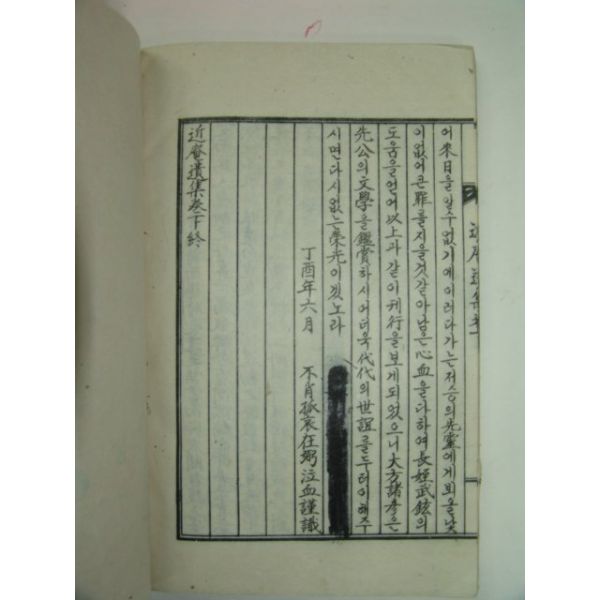 어 來日을 알 수 없기에 이러다가는 저승의 先靈에게 뵈올 낯
이 없어 큰 罪를 지을 것 같아 남은 心血을 다하여 長姪武鉉의
도움을 얻어 以上과 같이 刊行을 보게 되었으니 大方諸彦은
先公의 文學을 鑑賞하시어 더욱 代代의 世誼를 두터이 해주
시면 다시 없는 榮光이겠노라
丁酉年六月
不肖孤哀在 泣血謹識
近庵遺集卷下終